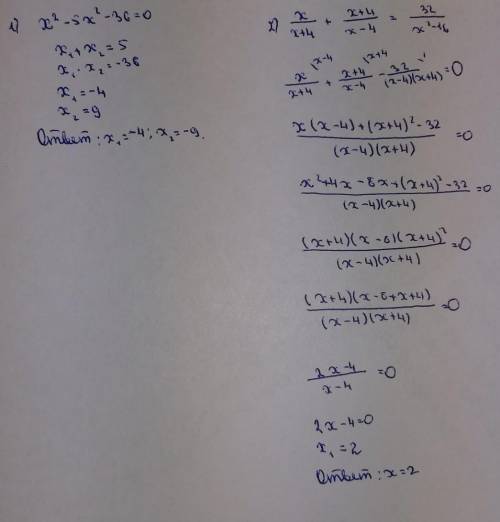 1) x² - 5x² - 36 = 0
x₁ + x₂ = 5
x₁ · x₂ = -36
x₁ = -4
x₂ = 9
Ответ: x₁ = -4; x₂ = -9.
2) x/(x+4) + (x+4)/(x-4) = 32/(x²-16)
x/(x+4) ^(x-4) + (x+4)/(x-4) ^(x+4) - 32/((x-4)(x+4)) ^1 = 0
(x(x-4)+(x+4)²-32)/((x-4)(x+4)) = 0
(x²+4x-8x+(x+4)²-32)/((x-4)(x+4)) = 0
((x+4)(x-8)(x+4)²)/((x-4)(x+4)) = 0
((x+4)(x-8+x+4))/((x-4)(x+4)) = 0
(2x-4)/(x-4) = 0
2x-4=0
x₁ = 2
Ответ: x=2